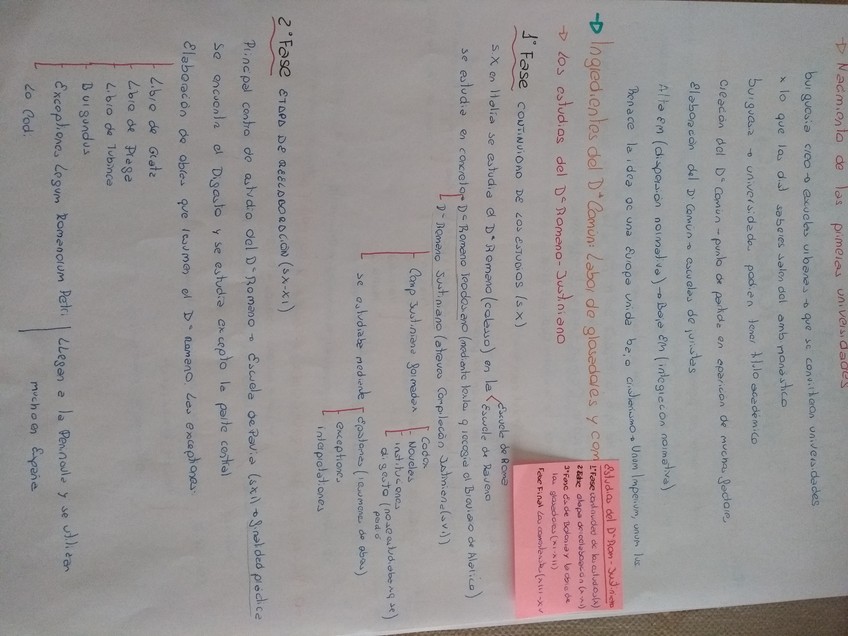 → Nacimiento de las primeras universidades
burguesia creo → escuelas urbanas → que se convirtieron universidades
x lo que las dist saberes salen del amb monástico
burguesía → universidades podían tener título académico
creación del Dº Común → punto de partida en aparición de muchos
Elaboración del Dº Común → escuelas de juristas
Alta EM (dispersión normativa) → Baja EM (integración normativa)
Renace la idea de una Europa unida bajo cristianismo → Unum Imperium, unum Ius
→ Ingredientes del Dº Común: Labor de glosadores y com
→ Los estudios del Dº Romano-Justiniano
Estudios del Dº Rom-Justiniano
1ª Fase continuidad de los estudios (X)
2 Fase etapa de reelaboración (X-XI)
3ª Fase Es. de Bolonia y la obra de
los glosadores (XI-XII)
Fase Final Los comentaristas (XIII-XV
1ª Fase CONTINUIDAD DE LOS ESTUDIOS (s X)
s X en Italia se estudia el Dº Romano (colapso) en la
Escuela de Roma
Escuela de Ravena
se estudia en concreto
Dº Romano teodosiano (mediante textos q recogía el Breviario de Alarico)
Dº Romano Justiniano (através Compilación Justiniana (s VI))
Comp Justiniana formada x
Codex
Novelas
instituciones
digesto (no se estudiaba xq se
perdió)
se estudiaba mediante
Epítomes (resumenes de obras)
exceptiones
interpretationes
2ª Fase ETAPA DE REELABORACIÓN (s X-XI)
Principal centro de estudio del Dº Romano → Escuela de Pavia (s XI) → finalidad práctica
se encuentra el Digesto y se estudia excepto la parte central
Elaboración de obras que resumen el Dº Romano. Las exceptiones
Libro de Gratz
Libro de Praga
Libro de Tubinga
Burgundus
Exceptiones Legum Romanorum Petri
Lo Codi
Llegan a la Península y se utilizan
mucho en España